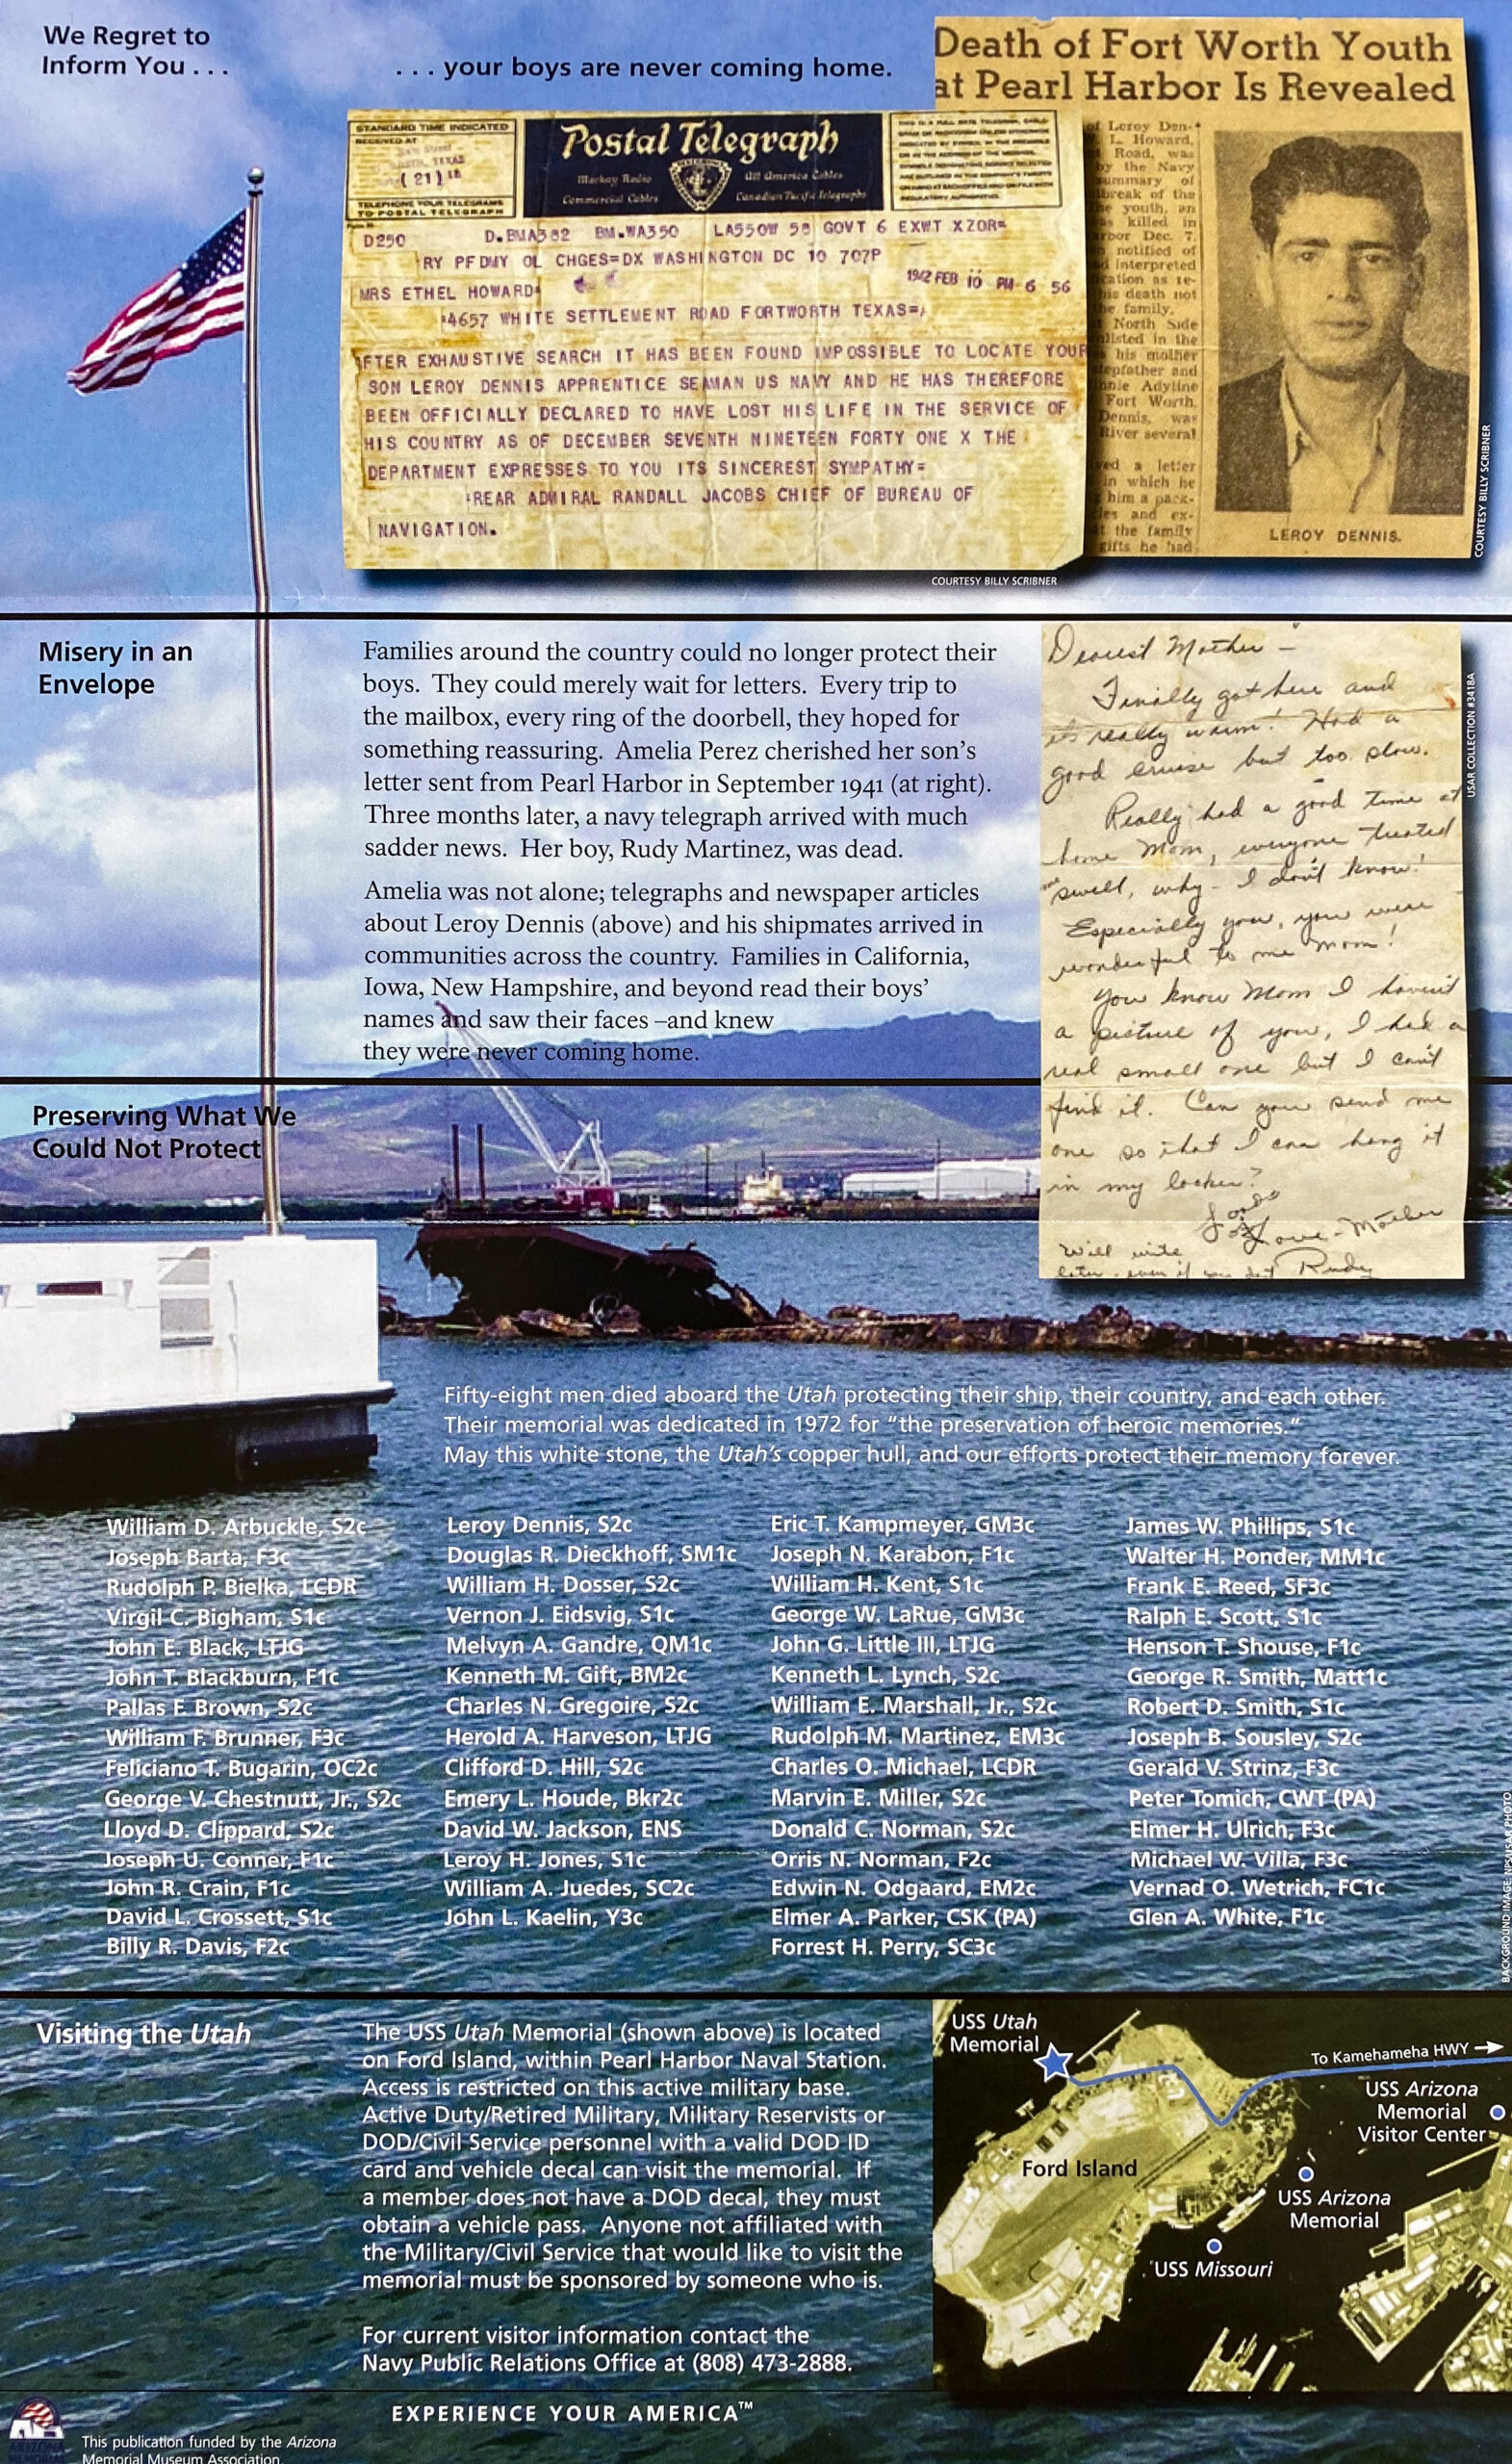 We Regret to
Inform You . . .
. . . your boys are never coming home.
Death of Fort Worth Youth
at Pearl Harbor Is Revealed
STANDARD TIME INDICATED
RECEIVED AT
TEXAS
TELEPHONE YOUR TELEGRAMS
TO POSTAL TELEGRAPH
Postal Telegraph
Mackay Radio
All America Cables
Commercial Cables
Canadian Pacific Telegraphs
D250 D.BMA382 BM.WA350 LA550W 58 GOVT 6 EXWT XZOR=
RY PFDMY OL CHGES=DX WASHINGTON DC 10 707P
1942 FEB 10 PM 6 56
MRS ETHEL HOWARD=
4657 WHITE SETTLEMENT ROAD FORTWORTH TEXAS=
AFTER EXHAUSTIVE SEARCH IT HAS BEEN FOUND IMPOSSIBLE TO LOCATE YOUR
SON LEROY DENNIS APPRENTICE SEAMAN US NAVY AND HE HAS THEREFORE
BEEN OFFICIALLY DECLARED TO HAVE LOST HIS LIFE IN THE SERVICE OF
HIS COUNTRY AS OF DECEMBER SEVENTH NINETEEN FORTY ONE X THE
DEPARTMENT EXPRESSES TO YOU ITS SINCEREST SYMPATHY=
REAR ADMIRAL RANDALL JACOBS CHIEF OF BUREAU OF
NAVIGATION.
of Leroy Den-
L. Howard,
Road, was
by the Navy
summary of
break of the
youth, an
as killed in
bor Dec. 7.
notified of
interpreted
cation as re-
his death not
the family.
North Side
nlisted in the
his mother
stepfather and
nnie Adyline
Fort Worth.
Dennis, was
River several
ved a letter
in which he
him a pack-
les and ex-
t the family
gifts he had
LEROY DENNIS.
COURTESY BILLY SCRIBNER
COURTESY BILLY SCRIBNER
Misery in an
Envelope
Families around the country could no longer protect their
boys. They could merely wait for letters. Every trip to
the mailbox, every ring of the doorbell, they hoped for
something reassuring. Amelia Perez cherished her son's
letter sent from Pearl Harbor in September 1941 (at right).
Three months later, a navy telegraph arrived with much
sadder news. Her boy, Rudy Martinez, was dead.
Amelia was not alone; telegraphs and newspaper articles
about Leroy Dennis (above) and his shipmates arrived in
communities across the country. Families in California,
Iowa, New Hampshire, and beyond read their boys'
names and saw their faces –and knew
they were never coming home.
Dearest Mother –
Finally got here and
it's really warm! Had a
good cruise but too slow.
Really had a good time at
home Mom, everyone treated
me swell, why - I don't know!
Especially you, you were
wonderful to me Mom!
You know Mom I haven't
a picture of you, I had a
real small one but I can't
find it. Can you send me
one so that I can hang it
in my locker?
Love - Mother
Will write
later, even if you
Rudy
USAR COLLECTION #3418A
Preserving What We
Could Not Protect
Fifty-eight men died aboard the Utah protecting their ship, their country, and each other.
Their memorial was dedicated in 1972 for "the preservation of heroic memories."
May this white stone, the Utah's copper hull, and our efforts protect their memory forever.
William D. Arbuckle, S2c
Joseph Barta, F3c
Rudolph P. Bielka, LCDR
Virgil C. Bigham, S1c
John E. Black, LTJG
John T. Blackburn, F1c
Pallas F. Brown, S2c
William F. Brunner, F3c
Feliciano T. Bugarin, OC2c
George V. Chestnutt, Jr., S2c
Lloyd D. Clippard, S2c
Joseph U. Conner, F1c
John R. Crain, F1c
David L. Crossett, S1c
Billy R. Davis, F2c
Leroy Dennis, S2c
Douglas R. Dieckhoff, SM1c
William H. Dosser, S2c
Vernon J. Eidsvig, S1c
Melvyn A. Gandre, QM1c
Kenneth M. Gift, BM2c
Charles N. Gregoire, S2c
Herold A. Harveson, LTJG
Clifford D. Hill, S2c
Emery L. Houde, Bkr2c
David W. Jackson, ENS
Leroy H. Jones, S1c
William A. Juedes, SC2c
John L. Kaelin, Y3c
Eric T. Kampmeyer, GM3c
Joseph N. Karabon, F1c
William H. Kent, S1c
George W. LaRue, GM3c
John G. Little III, LTJG
Kenneth L. Lynch, S2c
William E. Marshall, Jr., S2c
Rudolph M. Martinez, EM3c
Charles O. Michael, LCDR
Marvin E. Miller, S2c
Donald C. Norman, S2c
Orris N. Norman, F2c
Edwin N. Odgaard, EM2c
Elmer A. Parker, CSK (PA)
Forrest H. Perry, SC3c
James W. Phillips, S1c
Walter H. Ponder, MM1c
Frank E. Reed, SF3c
Ralph E. Scott, S1c
Henson T. Shouse, F1c
George R. Smith, Matt1c
Robert D. Smith, S1c
Joseph B. Sousley, S2c
Gerald V. Strinz, F3c
Peter Tomich, CWT (PA)
Elmer H. Ulrich, F3c
Michael W. Villa, F3c
Vernad O. Wetrich, FC1c
Glen A. White, F1c
BACKGROUND IMAGE: NPS/USAR PHOTO
Visiting the Utah
The USS Utah Memorial (shown above) is located
on Ford Island, within Pearl Harbor Naval Station.
Access is restricted on this active military base.
Active Duty/Retired Military, Military Reservists or
DOD/Civil Service personnel with a valid DOD ID
card and vehicle decal can visit the memorial. If
a member does not have a DOD decal, they must
obtain a vehicle pass. Anyone not affiliated with
the Military/Civil Service that would like to visit the
memorial must be sponsored by someone who is.
For current visitor information contact the
Navy Public Relations Office at (808) 473-2888.
USS Utah
Memorial
To Kamehameha HWY
USS Arizona
Memorial
Visitor Center
Ford Island
USS Arizona
Memorial
USS Missouri
EXPERIENCE YOUR AMERICA™
This publication funded by the Arizona
Memorial Museum Association.